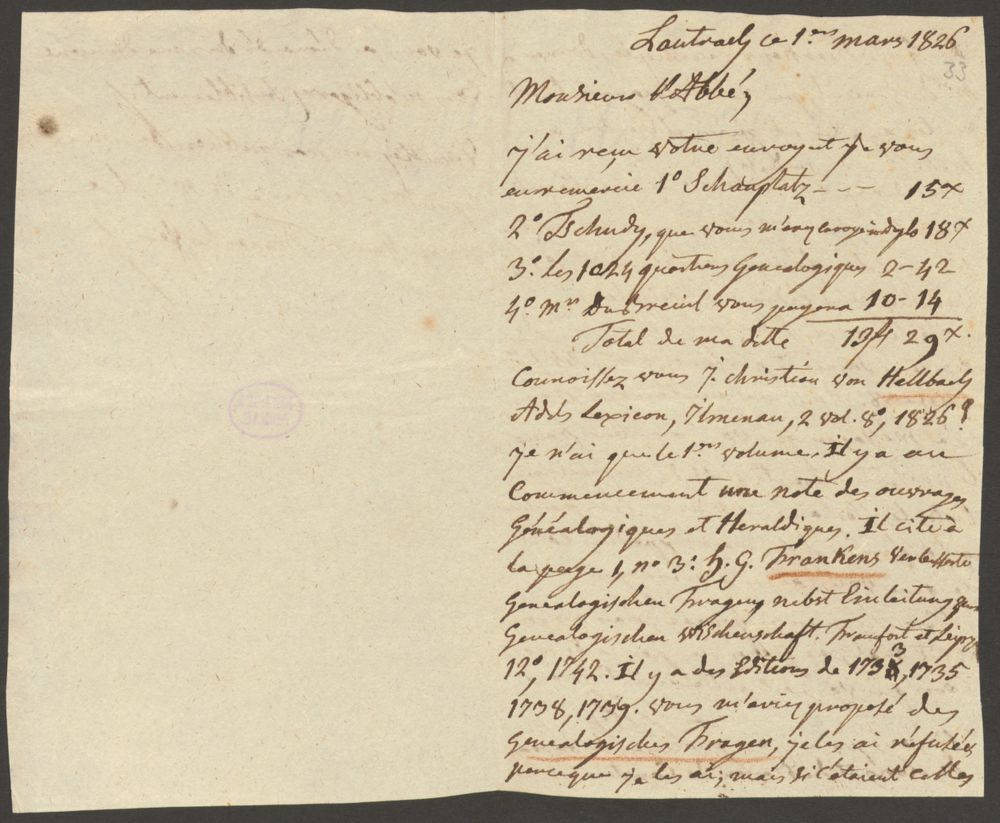 Lautrach ce 1.er mars 1826
33
Monsieur l'Abbé,
j'ai reçu votre envoy et je vous
en remercie 1º Schauplatz - - - 15x
2º Tschudy, que vous m'avez envoyé 18x
3º Les 1024 quartiers Genealogiques 2-42
4º Mr DuBreuil vous payera 10-14
Total de ma dette 13f 29x.
Connoissez vous J. christian von Hellbach
Adels Lexicon, Ilmenau, 2 vol. 8º, 1826?
je n'ai que le 1.er volume. Il y a au
Commencement une note des ouvrages
Généalogiques et Heraldiques. Il cite à
la page 1, nº 3: h. G. Frankens verbesserte
Genealogischen Fragen, nebst Einleitung zur
Genealogischen wischenschaft. Francfort et Leipz
12º, 1742. Il y a des Editions de 1733, 1735
1738, 1739. vous m'aviez proposé des
Genealogisches Fragen, je les ai réfusées
parceque je les ai, mais si c'étaient celles